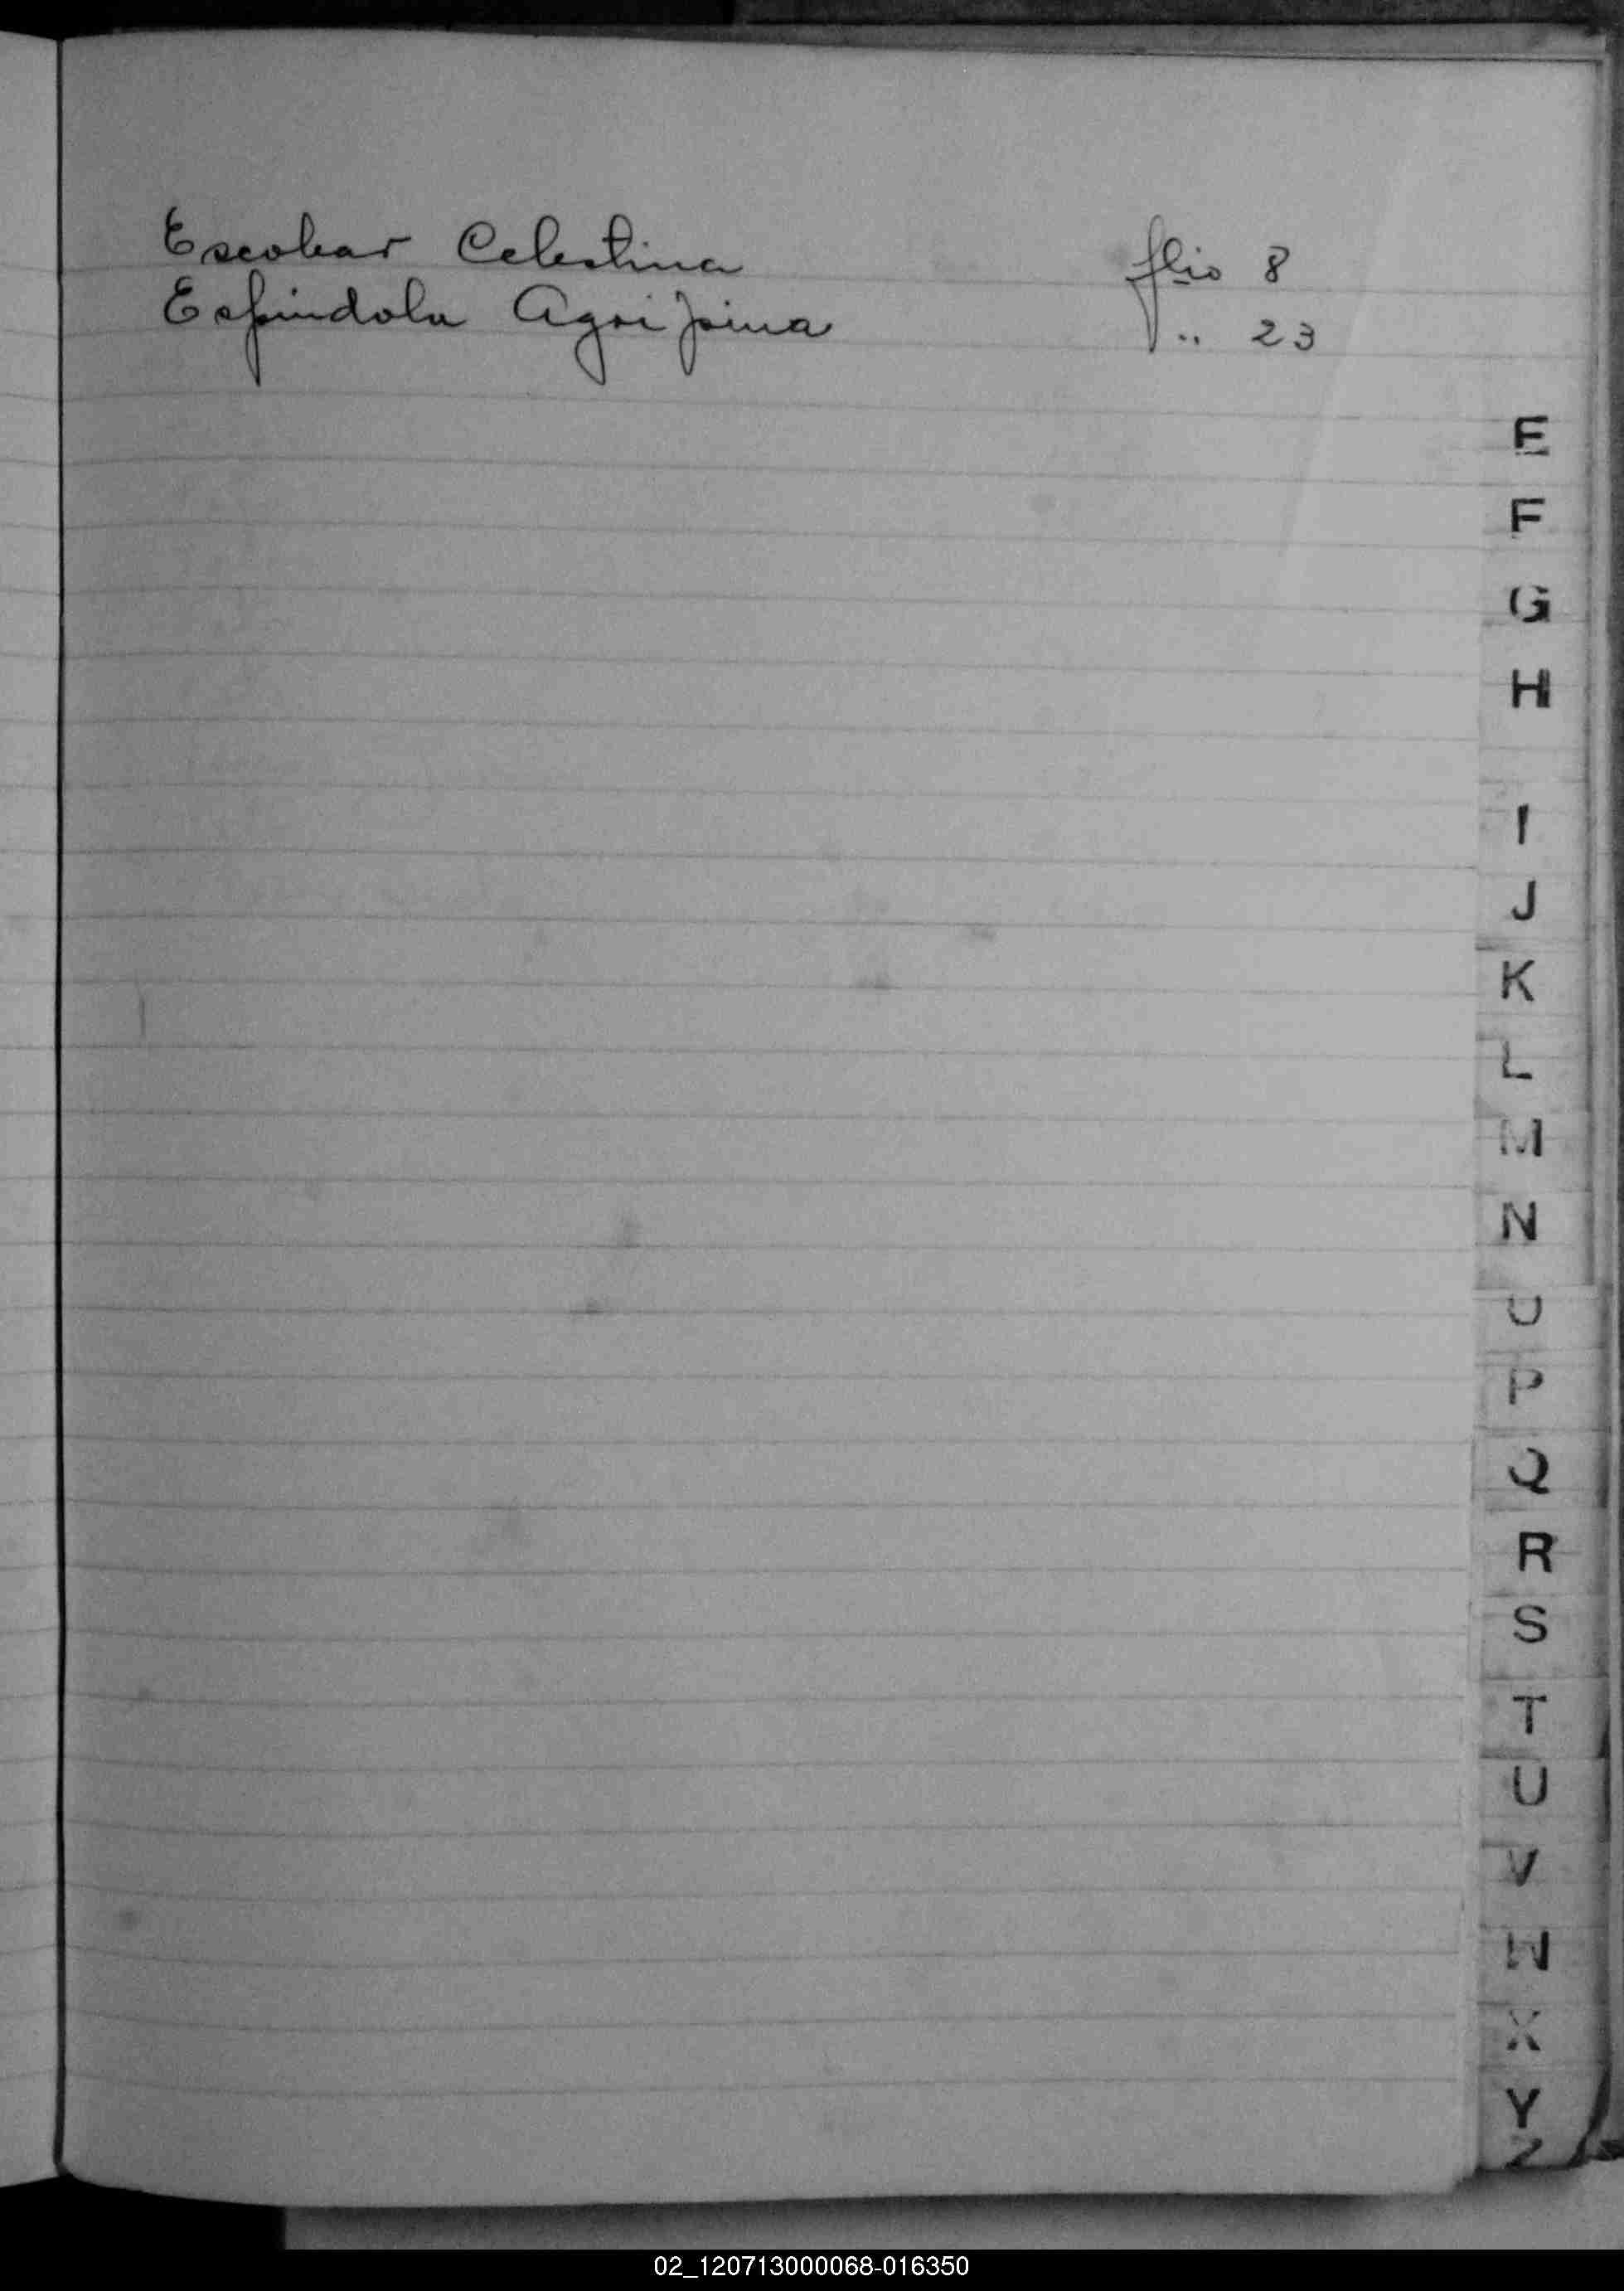 Escobar Celestina flio 8
Espindola Agripina " 23
E
F
G
H
I
J
K
L
M
N
O
P
Q
R
S
T
U
V
W
X
Y
Z
02_120713000068-016350